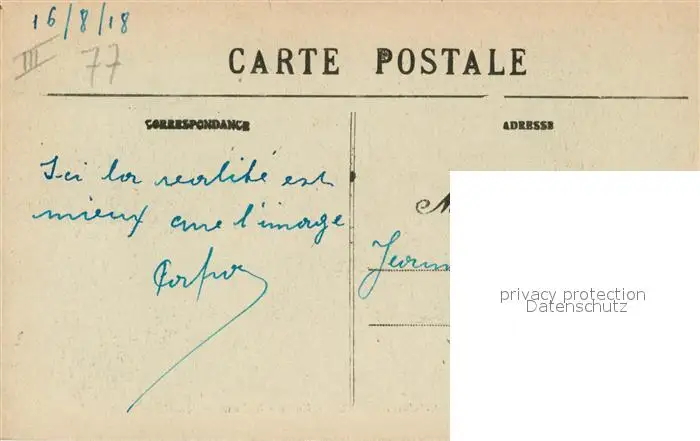 16/8/18
III 77
CARTE POSTALE
CORRESPONDANCE
ADRESSE
Ici la realité est
mieux que l'image
M
Jeann
privacy protection
Datenschutz